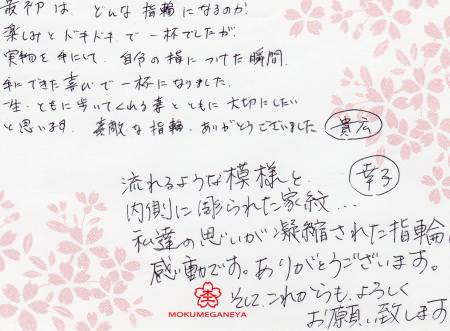 最初は、どんな指輪になるのか?
楽しみとドキドキで一杯でしたが、
実物を手にして、自分の指につけた瞬間、
手にできた喜びで一杯になりました。
一生、ともに歩いてくれる妻とともに大切にしたい
と思います。素敵な指輪、ありがとうございました 貴広
流れるような模様と、 幸子
内側に彫られた家紋...
私達の思いが凝縮された指輪に
感動です。ありがとうございます。
そして、これからも、よろしく
お願い致します
MOKUMEGANEYA